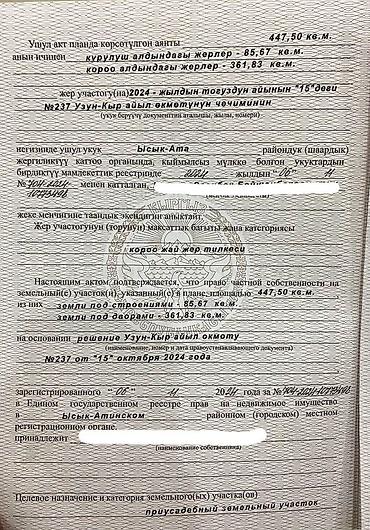 Ушул акт планда көрсөтүлгөн аянты 447,50 кв.м.
анын ичинен курулуш алдындагы жерлер - 85,67 кв.м.
короо алдындагы жерлер - 361,83 кв.м.
жер участогу(на) 2024 - жылдын тогуздун айынын "15"деги
№237 Узун-Кыр айыл өкмөтүнүн чечиминин
(укук берүүчү документтин аталышы, жылы, номери)
негизинде ушул укук Ысык-Ата райондук (шаардык)
жергиликтүү каттоо органында, кыймылсыз мүлккө болгон укуктардын
бирдиктүү мамлекеттик реестринде 2024 жылдын "06" 11
№ менен катталган,
жеке менчигине таандык экендигин аныктайт.
Жер участогунун (торунун) максаттык багыты жана категориясы
короо жай жер тилкеси
Настоящим актом подтверждается, что право частной собственности на
земельный(е) участок(и), указанный(е) в плане, площадью 447,50 кв.м.
из них земли под строениями - 85,67 кв.м.
земли под дворами - 361,83 кв.м.
на основании решение Узун-Кыр айыл окмоту
(наименование, номер и дата правоустанавливающего документа)
№237 от "15" октября 2024 года
зарегистрированного "06" 11 2024 года за №
в Едином государственном реестре прав на недвижимое имущество
в Ысык-Атинском районным (городском) местном
регистрационном органе.
принадлежит
(наименование собственника)
Целевое назначение и категория земельного(ых) участка(ов)
приусадебный земельный участок